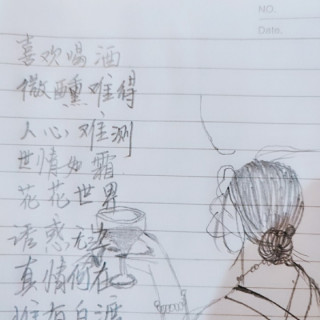 NO.
Date.
喜欢喝酒
微醺难得
人心难测
世情如霜
花花世界
诱惑无边
真情何在
唯有白酒